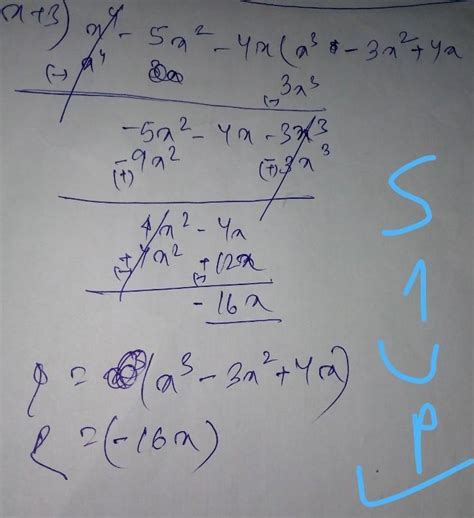 x+3) x⁴ - 5x² - 4x (x³ - 3x² + 4x
(-) x⁴ 3x³
(-)
-5x² - 4x - 3x³
-9x² - 3x³
(+) (+)
4x² - 4x
+4x² +12x
(-) (-)
-16x
= (x³ - 3x² + 4x)
= (-16x)
S
1
U
P